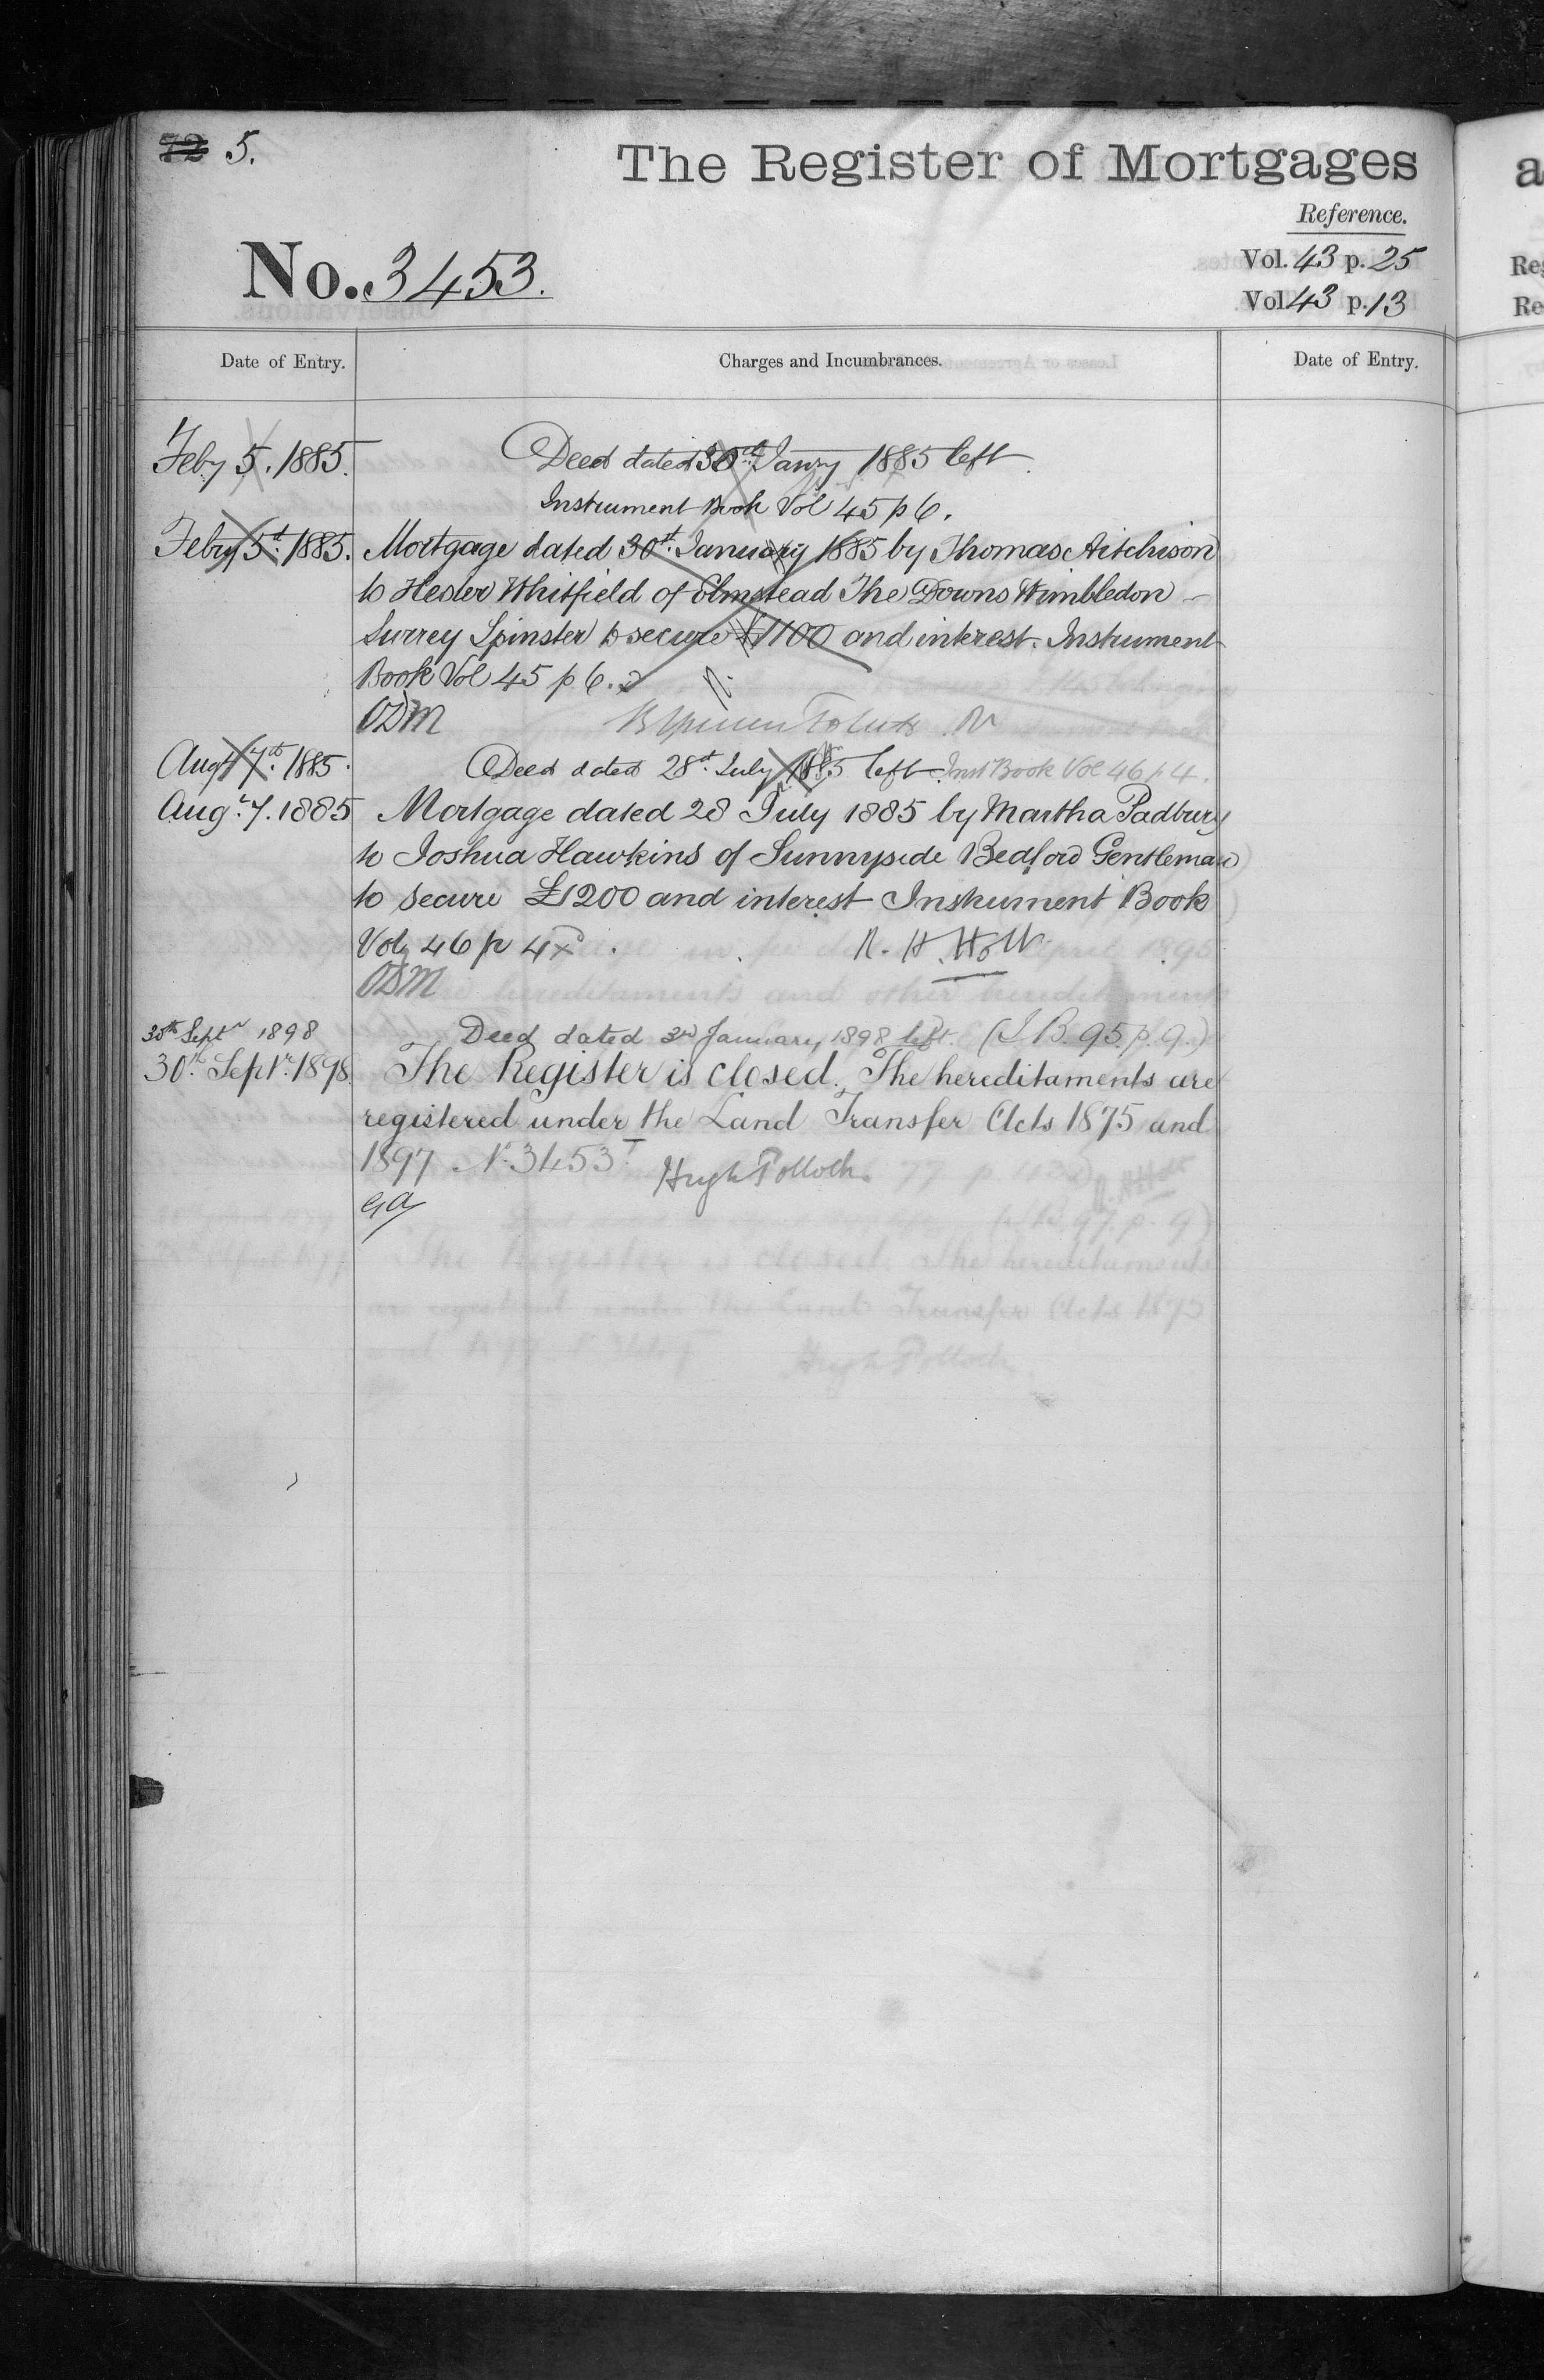 72 5.
The Register of Mortgages
Reference.
No. 3453.
Vol. 43 p. 25
Vol. 43 p. 13
Date of Entry. Charges and Incumbrances. Date of Entry.
Feby 5. 1885. Deed dated 30th Janry 1885 left
Instrument Book Vol 45 p 6.
Feby 5th. 1885. Mortgage dated 30th. January 1885 by Thomas Aitchison
to Hester Whitfield of Elmstead The Downs Wimbledon
Surrey Spinster to secure £1100 and interest. Instrument
Book Vol 45 p 6.
ODM
Augt 7th. 1885. Deed dated 28th. July 1885 left Inst Book Vol 46 p 4.
Augt. 7. 1885 Mortgage dated 28 July 1885 by Martha Padbury
to Joshua Hawkins of Sunnyside Bedford Gentleman
to secure £1200 and interest Instrument Book
Vol 46 p 4 R. H. Holt
ODM
30th Septr 1898 Deed dated 3rd January 1898 left. (I. B. 95. p. 9.)
30th. Septr. 1898. The Register is closed. The hereditaments are
registered under the Land Transfer Acts 1875 and
1897 No. 3453T. Hugh Pollock.
GA
a
Reg
Re